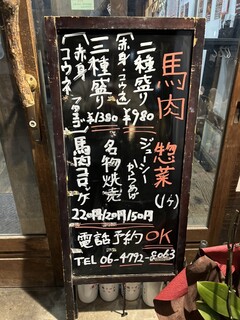 馬肉
二種盛り
(赤身・コウネ)
¥980
三種盛り
(赤身
コウネ
¥1380
惣菜
(1ケ)
ジューシー
からあげ
名物焼売
馬肉コロッケ
220円/120円/150円
電話予約OK
TEL 06-4792-8063